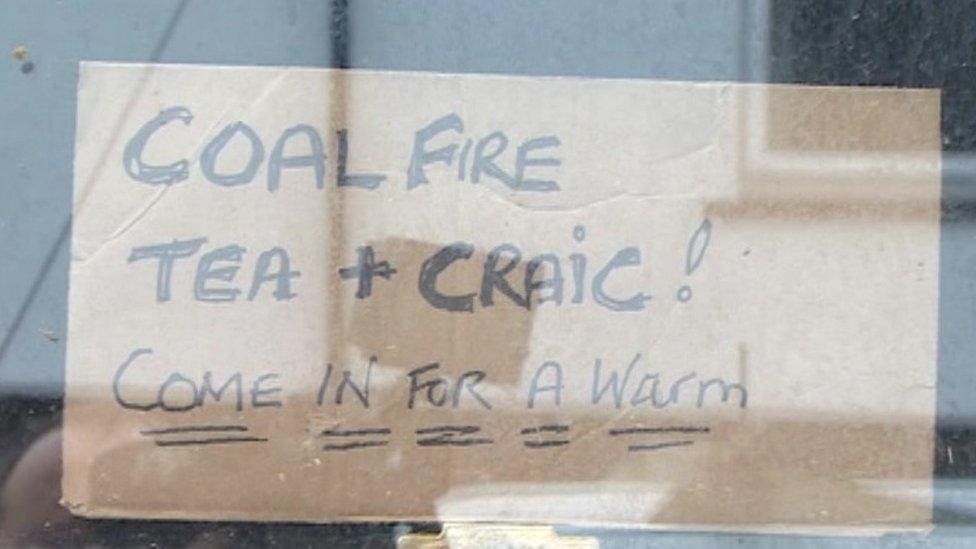 COAL FIRE
TEA + CRAiC!
COME IN FOR A Warm